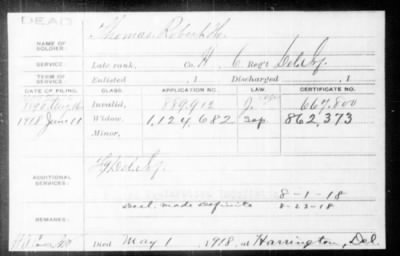 DEAD
NAME OF SOLDIER: Thomas Robert H.
SERVICE: Late rank, Co. H, 6 Reg't Del. Inf.
TERM OF SERVICE: Enlisted , 1 Discharged , 1
DATE OF FILING. CLASS. APPLICATION NO. LAW. CERTIFICATE NO.
1890 Invalid, 889,912 J. 667,800
1918 June 11 Widow, 1,124,682 862,373
Minor,
ADDITIONAL SERVICES:
8-1-18
made definite 8-23-18
REMARKS:
Died May 1, 1918, at Harrington, Del.